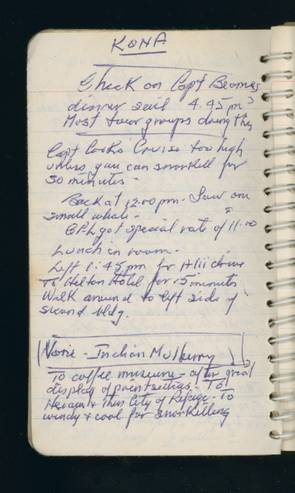 KONA
Check on Capt Beans
dinner sail 4.45 pm
Most tour groups doing this
Capt Cooks Cruise too high
unless you can snorkell for
30 minutes -
Back at 12:00 pm. Saw one
small whale.
got special rate of 11.00
Lunch in room.
Left 1:45 pm for Alii drive
to Hilton Hotel for 5 minutes
Walk around to left side of
second bldg.
Noni - Indian Mulberry
To coffee museum - after great
display of - To
+ Thin City of Refuge - To
windy + cool for snorkelling